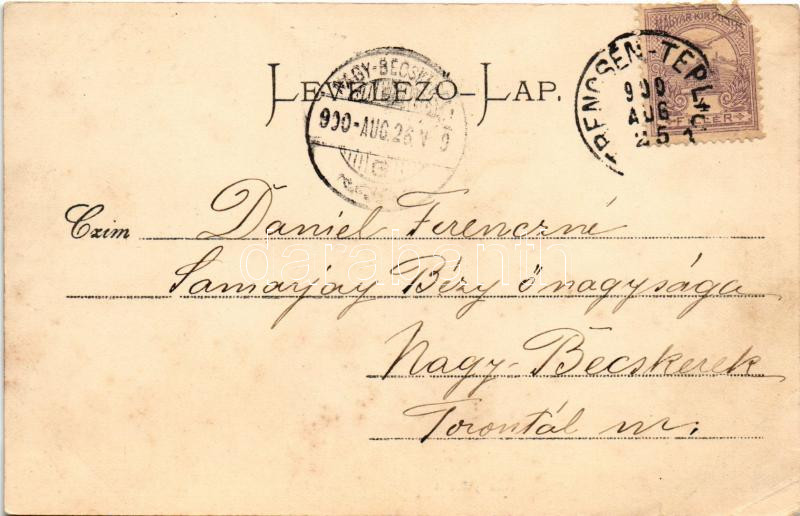 MAGYAR KIR. POSTA
FILLÉR
TRENCSÉN-TEPLA
900
AUG
25
NAGY-BECSK
900-AUG.26
LEVELEZŐ-LAP.
Czim Daniel Ferenczné
Samarjay Bézy őnagysága
Nagy-Becskerek
Torontál m.
darabanth